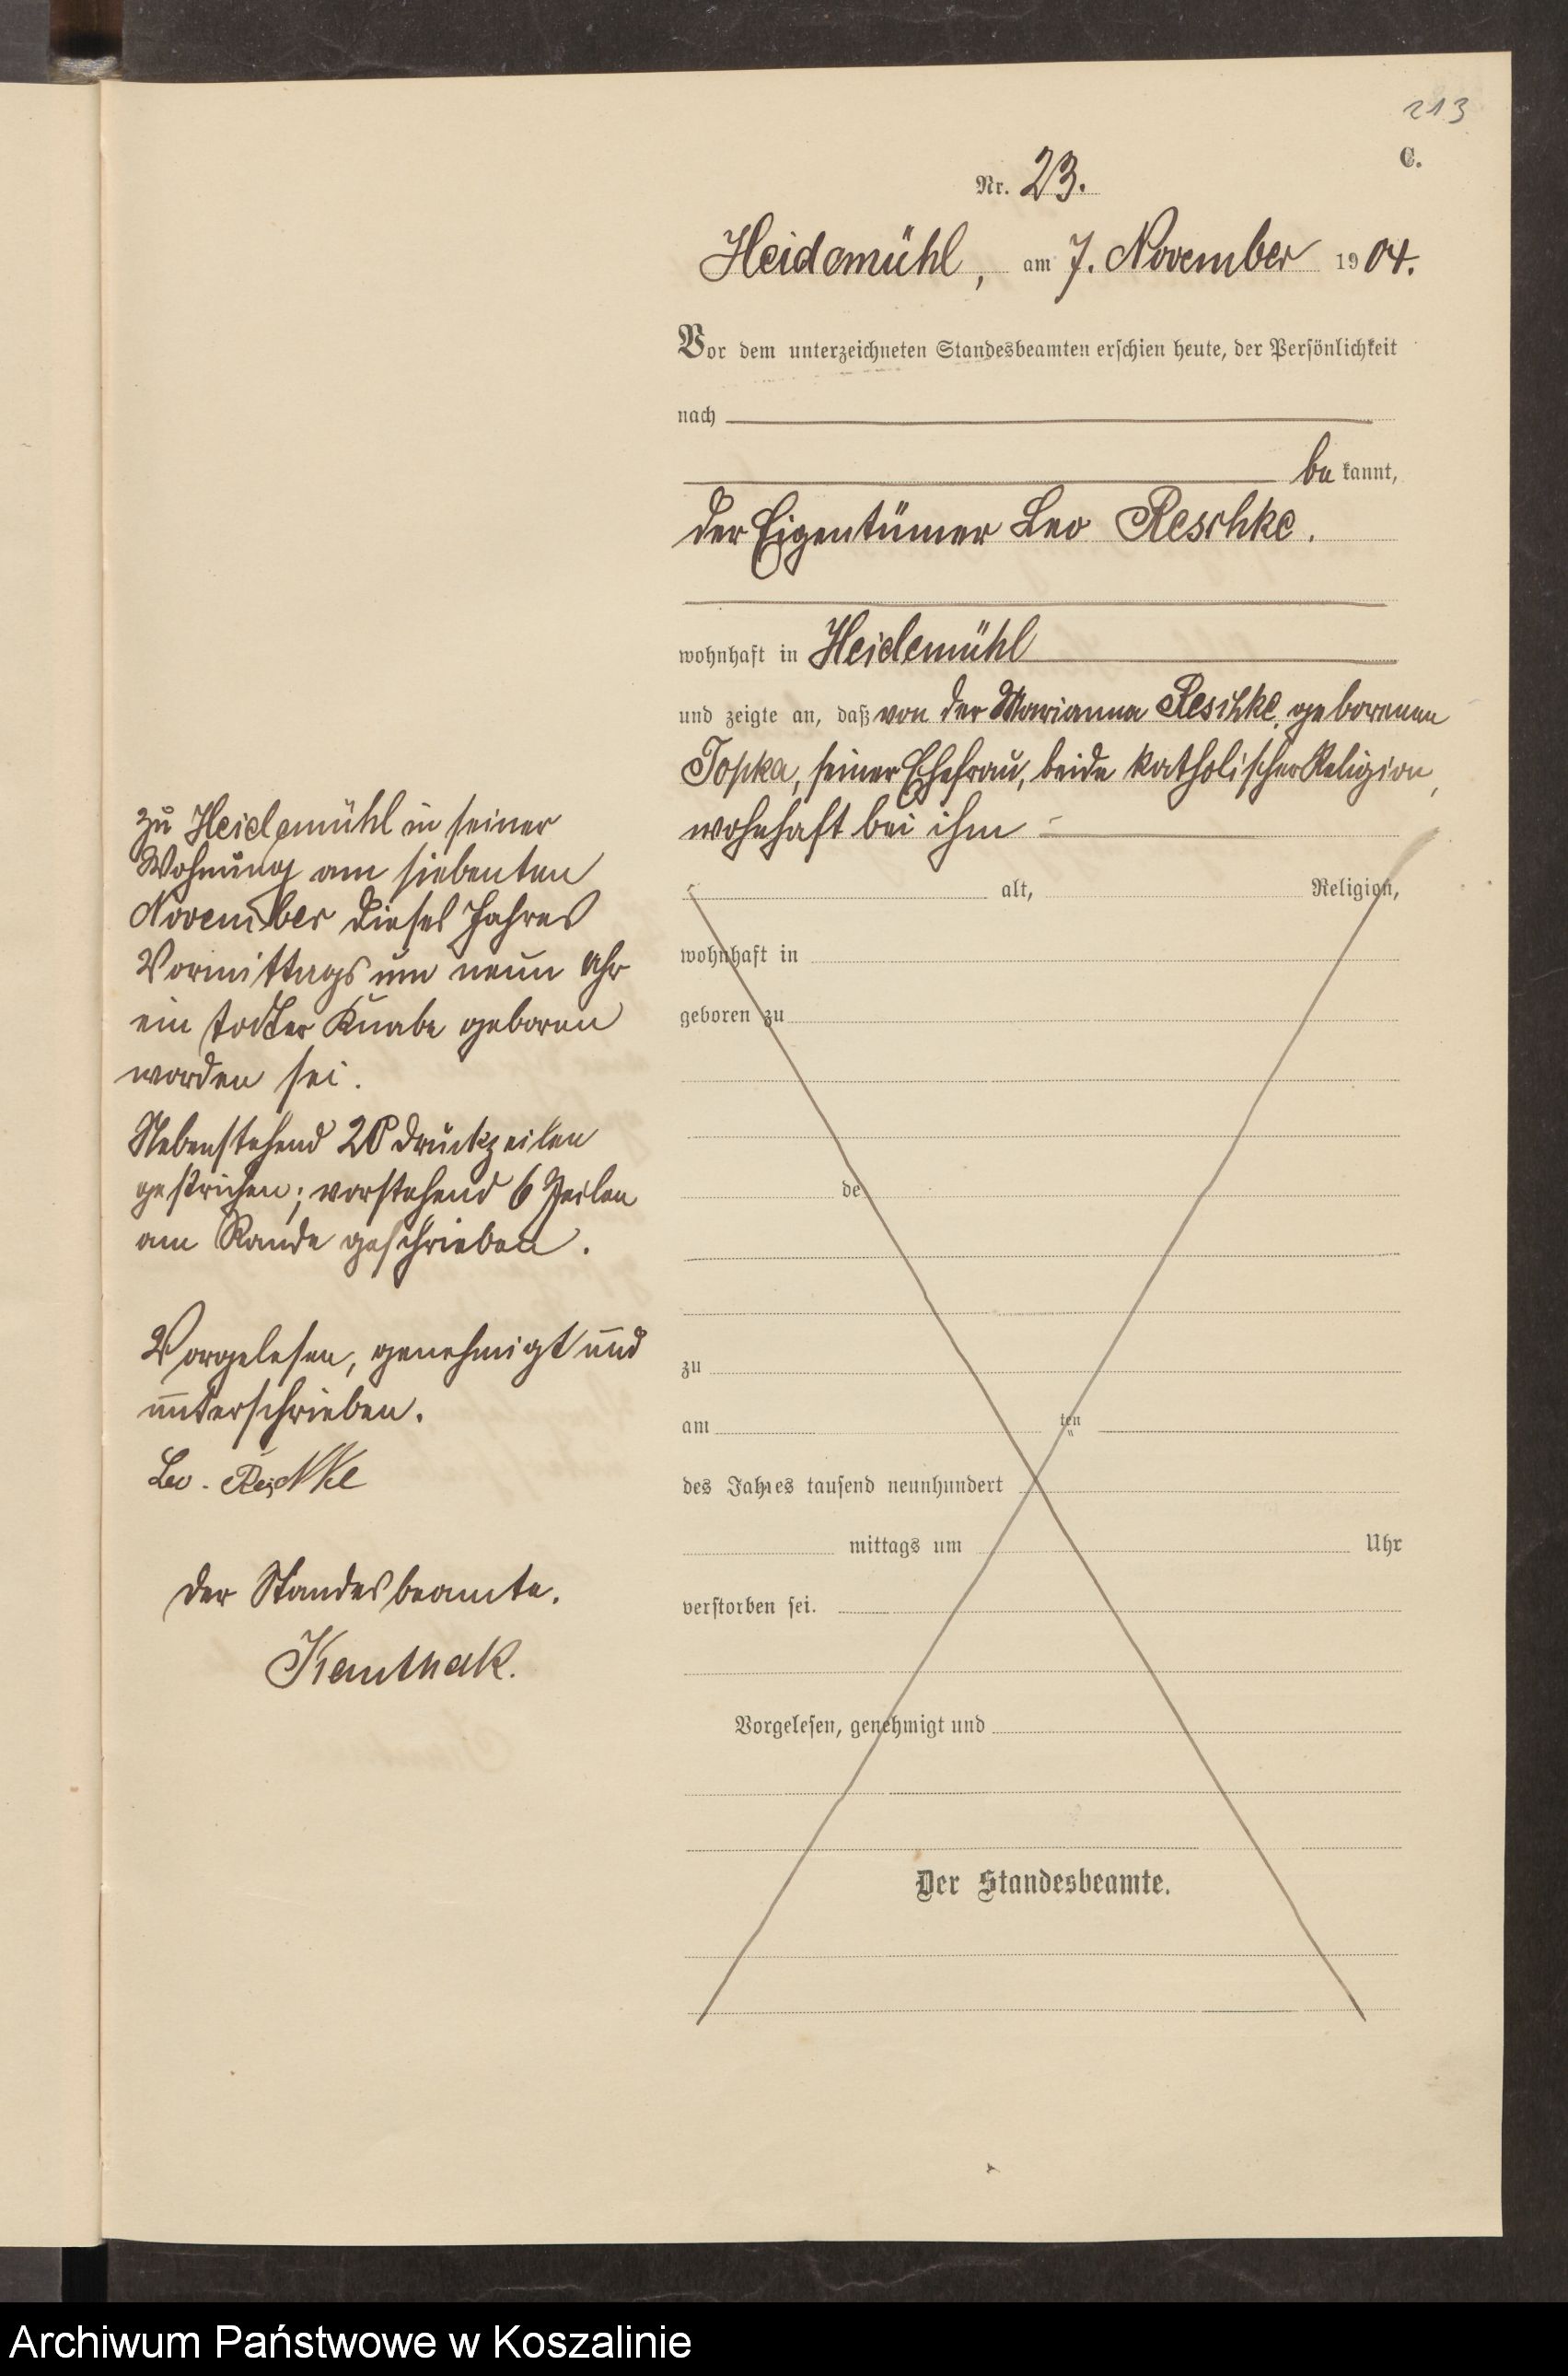 213
C.
Nr. 23.
Heidemühl, am 7. November 1904.
Vor dem unterzeichneten Standesbeamten erschien heute, der Persönlichkeit
nach
be kannt,
der Eigentümer Leo Reschke.
wohnhaft in Heidemühl
und zeigte an, daß von der Marianna Reschke, geborenen
Topka, seiner Ehefrau, beide katholischer Religion,
wohnhaft bei ihm
zu Heidemühl in seiner
Wohnung am siebenten
November dieses Jahres
Vormittags um neun Uhr
ein todter Knabe geboren
worden sei.
Nebenstehend 20 Druckzeilen
gestrichen; vorstehend 6 Zeilen
am Rande geschrieben.
Vorgelesen, genehmigt und
unterschrieben.
Leo Reschke
Der Standesbeamte.
Kauthak.
alt, Religion,
wohnhaft in
geboren zu
de
zu
am ten
des Jahres tausend neunhundert
mittags um Uhr
verstorben sei.
Vorgelesen, genehmigt und
Der Standesbeamte.
Archiwum Państwowe w Koszalinie